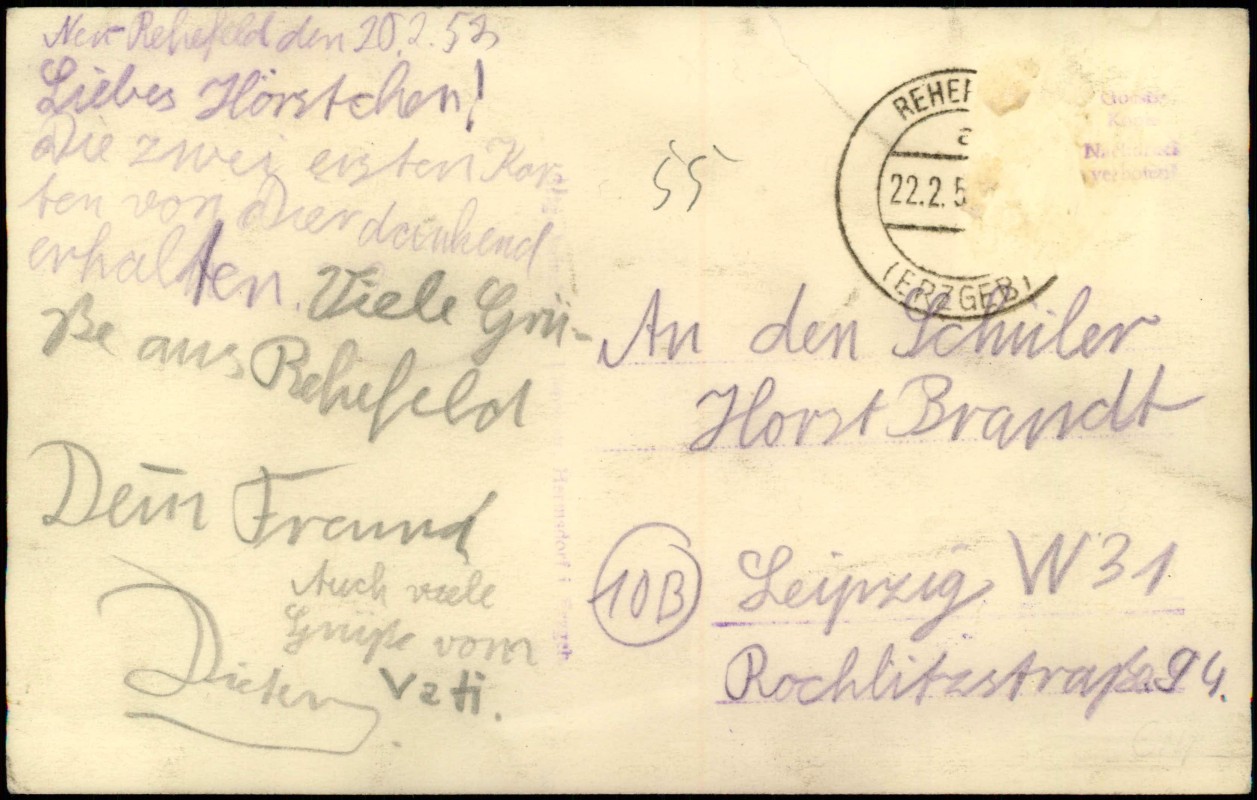 Neu-Rehefeld den 20.2.53
Liebes Hörstchen!
Die zwei ersten Kar-
ten von Dier dankend
erhalten. Viele Grü-
ße aus Rehefeld
Dein Freund
Dieter
Auch viele
Grüße vom
Vati.
55
REHEF
a
22.2.5
(ERZGEB)
Nachdruck
verboten!
An den Schüler
Horst Brandt
10B Leipzig W 31
Rochlitzstraße 94.